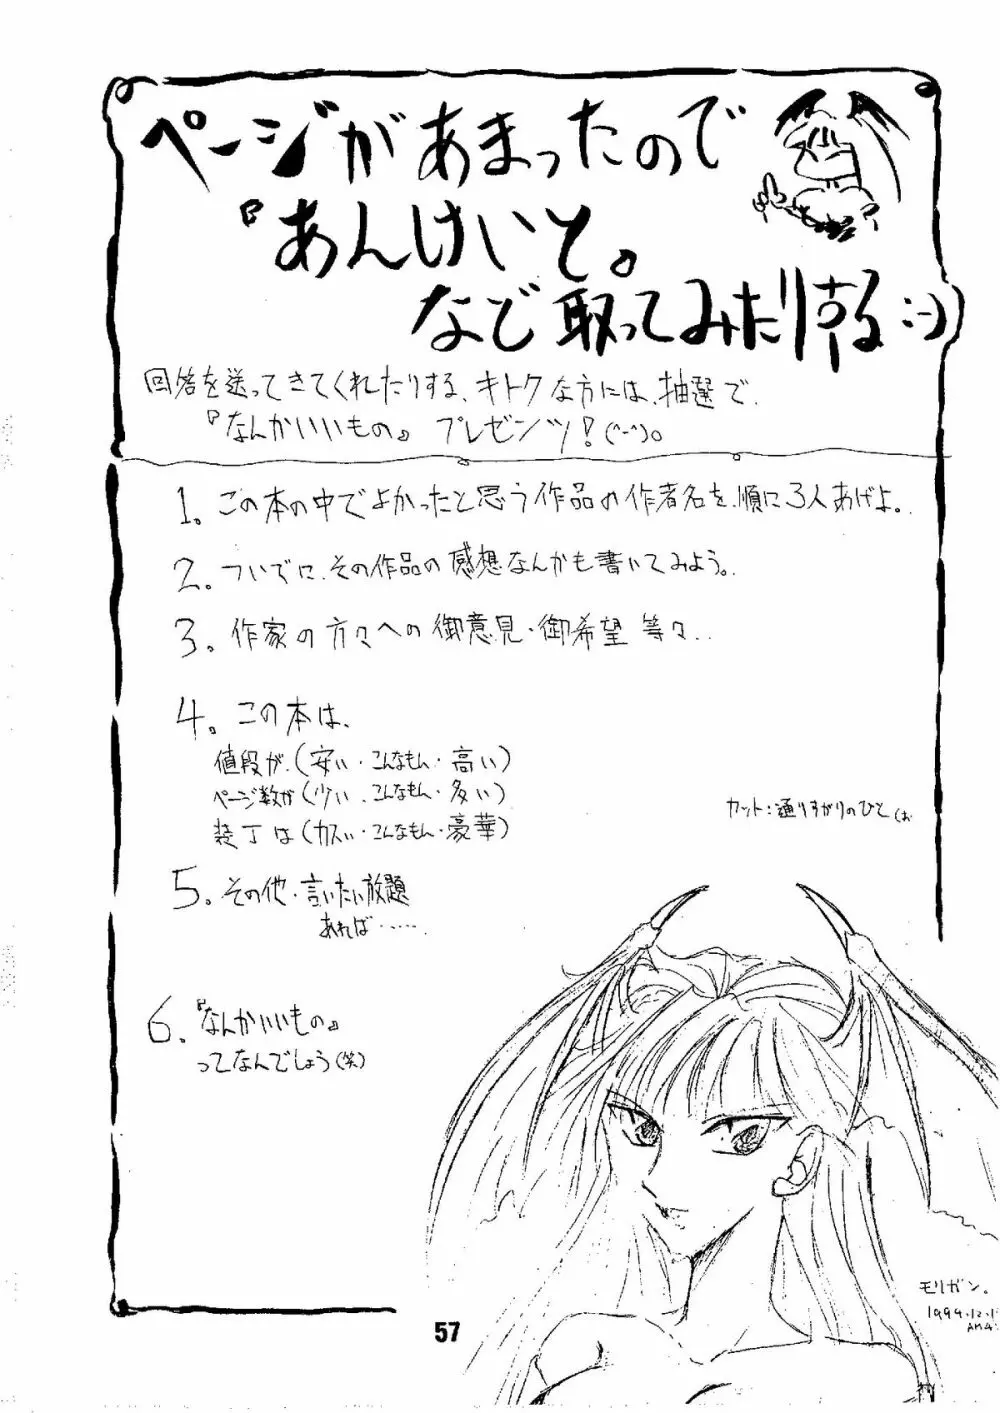 ページがあまったので
『あんけいと。
など取ってみたりする :-)
回答を送ってきてくれたりする、キトクな方には、抽選で、
『なんかいいもの』 プレゼンツ！(^-^)。
1。この本の中でよかったと思う作品の作者名を、順に3人あげよ。
2。ついでに、その作品の感想なんかも書いてみよう。
3。作家の方々への御意見・御希望等々..
4。この本は、
値段が、(安い・こんなもん・高い)
ページ数が (少い・こんなもん・多い)
装丁は (カスい・こんなもん・豪華)
カット：通りすがりのひと (お
5。その他・言いたい放題
あれば‥‥‥
6。『なんかいいもの』
ってなんでしょう(笑)
モリガン。
AM4:
57